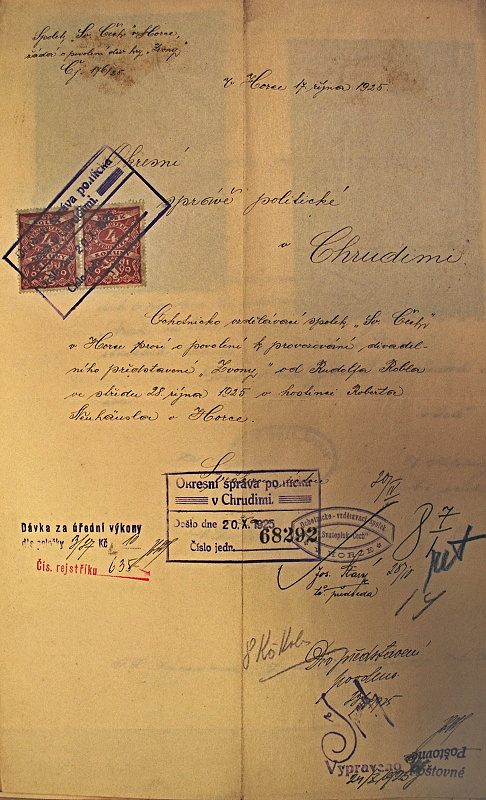 Spolek „Sv. Čech" v Horce,
žádá o povolení div. hry „Zvony"
Čj. 176/25
V Horce 17. října 1925.
Okresní
správě politické
v
Chrudimi.
Ochotnicko vzdělávací spolek „Sv. Čech"
v Horce prosí o povolení k provozování divadel-
ního představení „Zvony" od Rudolfa Kobla
ve středu 28. října 1925 v hostinci Roberta
v Horce.
Okresní správa politická
v Chrudimi.
Došlo dne 20.X.1925
Číslo jedn. 68292
Ochotnicko-vzdělávací spolek
"Svatopluk Čech"
HORCE
Dávka za úřední výkony
dle položky 3/87 Kč 10
Čís. rejstříku 635
t.č. předseda
8 Kč Kolk
Dvo představení
povoleno
Vypraveno
24/X 1925
Poštovné
Poštovné